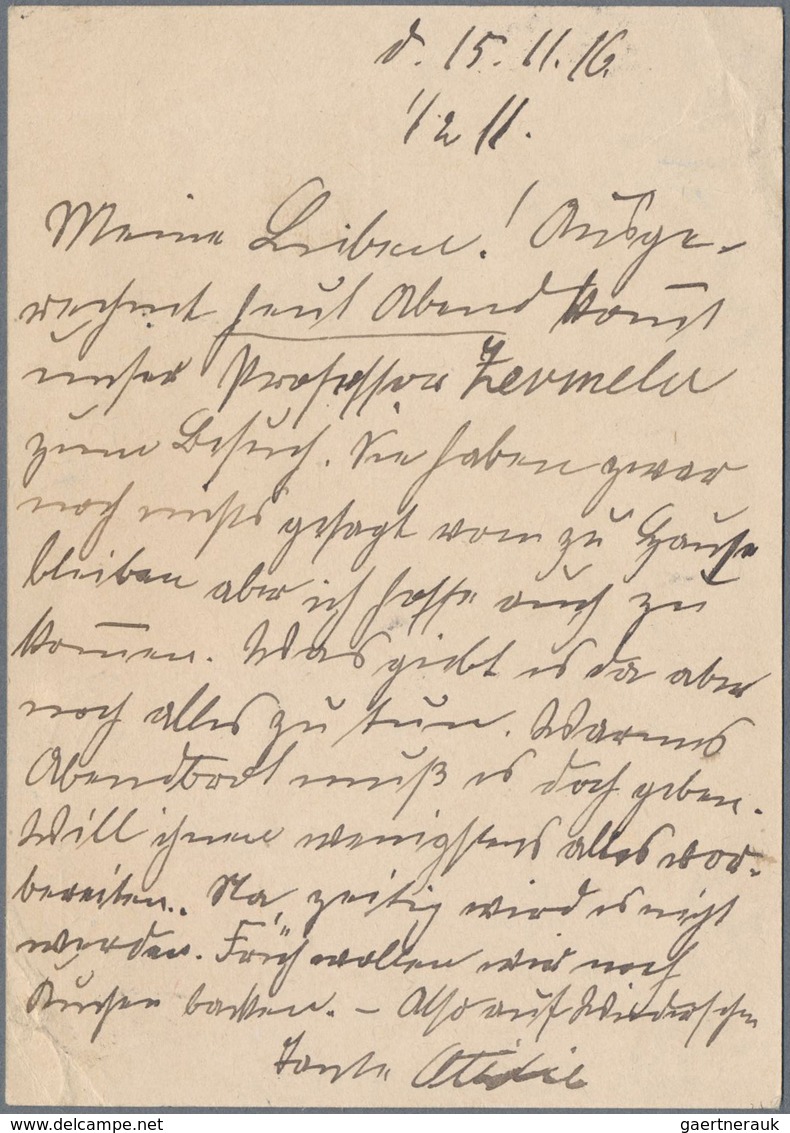 d. 15. 11. 16.
1/2 11.
Meine Lieben! Ausge-
rechnet heut Abend kom̄t
unser Professor Zermelo
zum Besuch. Sie haben zwar
noch nichts gesagt vom zu Hause
bleiben aber ich hoffe auch zu
kom̄en. Was giebt es da aber
noch alles zu tun. Warmes
Abendbrot muß es doch geben.
Will ihnen wenigstens alles vor-
bereiten. Na, zeitig wird es nicht
werden. Früh wollen wir noch
Kuchen backen. – Also auf Wiedersehn
Tante
gaertnerauk